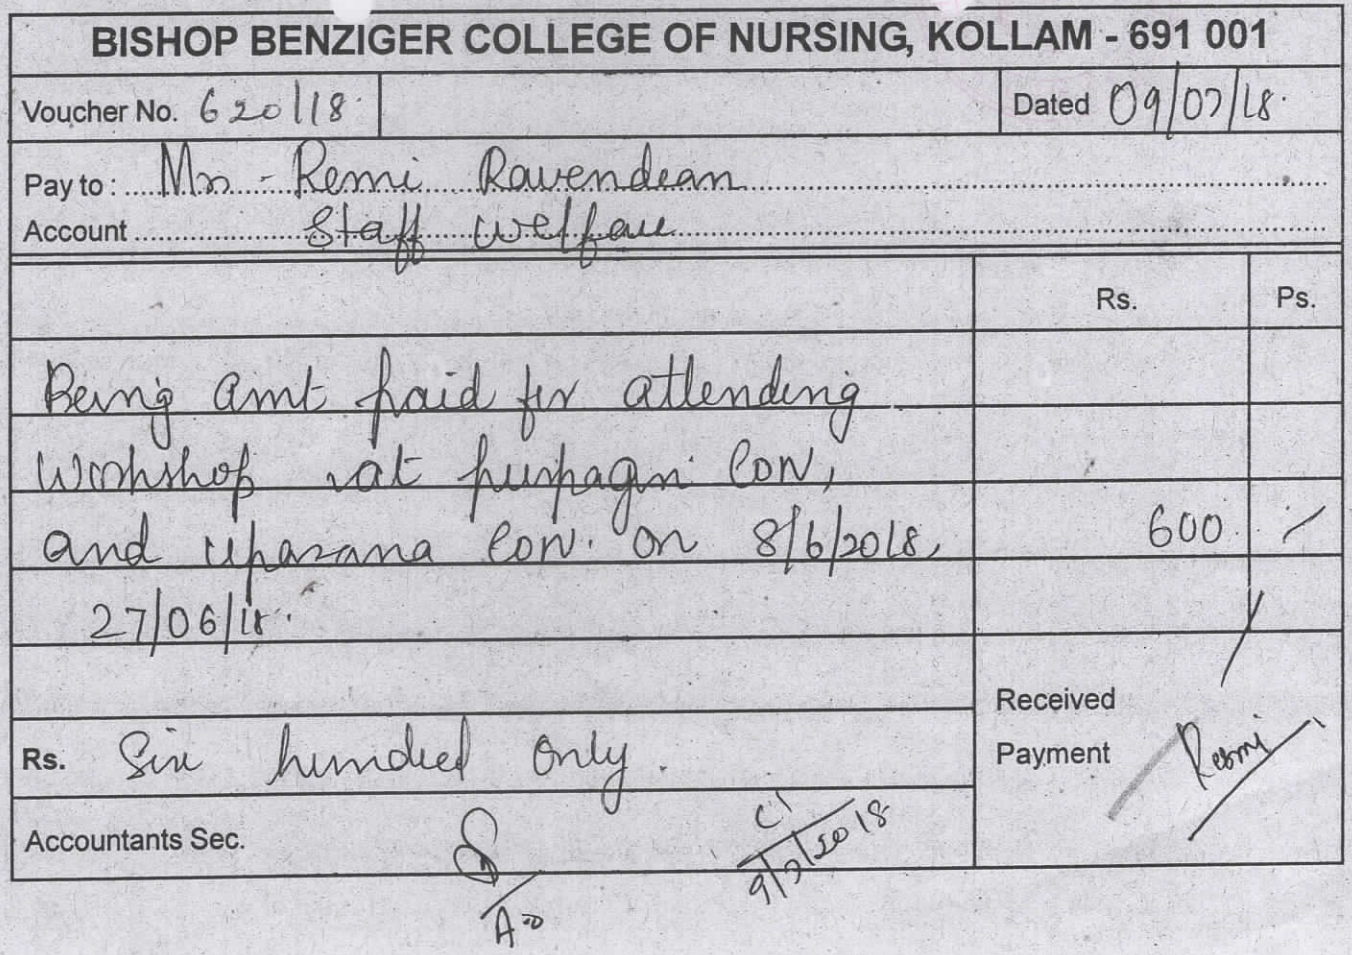 BISHOP BENZIGER COLLEGE OF NURSING, KOLLAM - 691 001
Voucher No. 620/18 Dated 09/07/18.
Pay to : Mrs - Remi Ravendean
Account Staff welfare
Rs. Ps.
Being amt paid for attending
Workshop at pushpagiri CON,
and upasana CON. on 8/6/2018, 600 /
27/06/18.
Received
Payment Resmi
Rs. Six hundred only.
Accountants Sec.
9/7/2018
AO